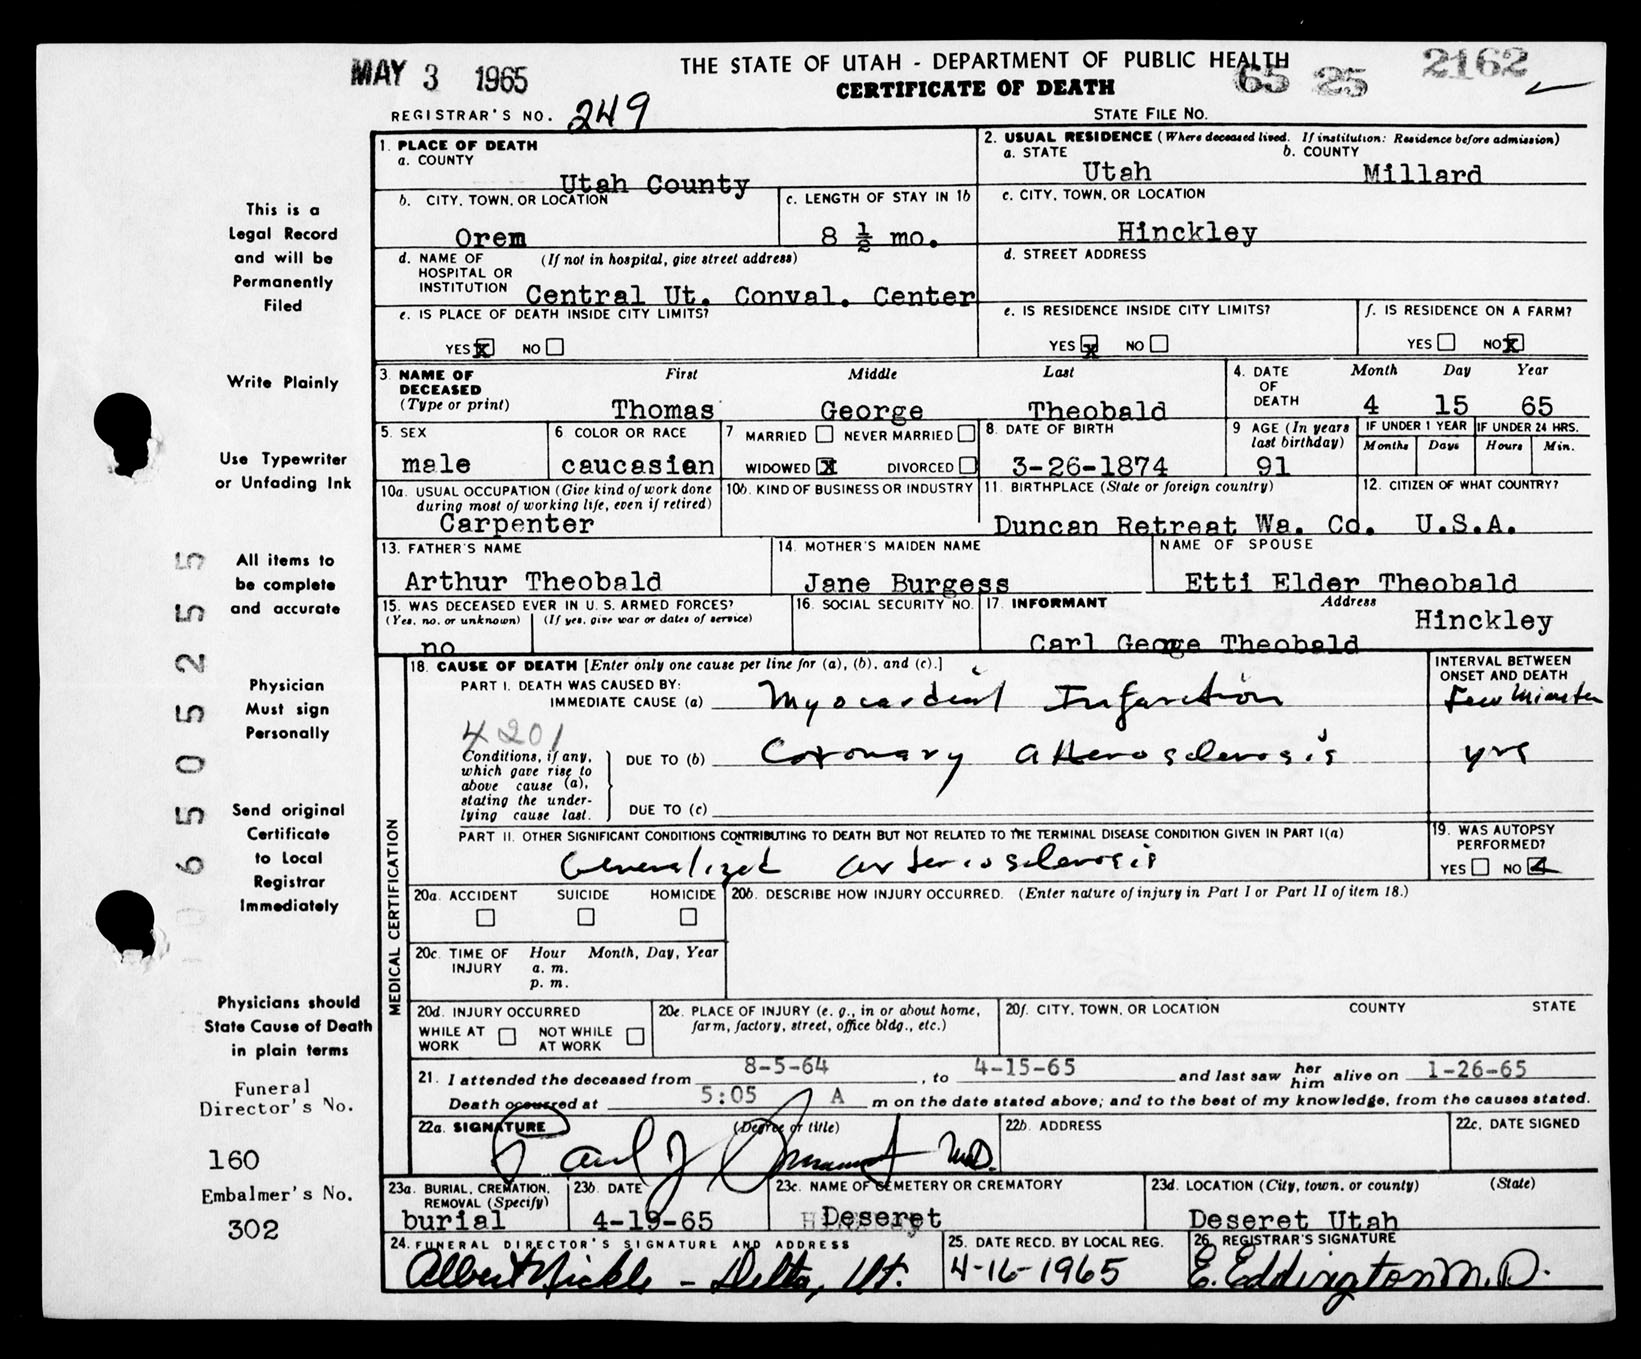 MAY 3 1965
THE STATE OF UTAH - DEPARTMENT OF PUBLIC HEALTH
CERTIFICATE OF DEATH
65 25 2162
REGISTRAR'S NO. 249
STATE FILE NO.
This is a
Legal Record
and will be
Permanently
Filed
Write Plainly
Use Typewriter
or Unfading Ink
All items to
be complete
and accurate
Physician
Must sign
Personally
Send original
Certificate
to Local
Registrar
Immediately
Physicians should
State Cause of Death
in plain terms
Funeral
Director's No.
160
Embalmer's No.
302
065052555
1. PLACE OF DEATH
a. COUNTY
Utah County
2. USUAL RESIDENCE (Where deceased lived. If institution: Residence before admission)
a. STATE b. COUNTY
Utah Millard
b. CITY, TOWN, OR LOCATION
Orem
c. LENGTH OF STAY IN 1b
8 ½ mo.
c. CITY, TOWN, OR LOCATION
Hinckley
d. NAME OF (If not in hospital, give street address)
HOSPITAL OR
INSTITUTION Central Ut. Conval. Center
d. STREET ADDRESS
e. IS PLACE OF DEATH INSIDE CITY LIMITS?
YES X NO
e. IS RESIDENCE INSIDE CITY LIMITS?
YES X NO
f. IS RESIDENCE ON A FARM?
YES NO X
3. NAME OF DECEASED First Middle Last
(Type or print) Thomas George Theobald
4. DATE OF DEATH Month Day Year
4 15 65
5. SEX
male
6 COLOR OR RACE
caucasian
7 MARRIED NEVER MARRIED
WIDOWED X DIVORCED
8. DATE OF BIRTH
3-26-1874
9 AGE (In years last birthday)
91
IF UNDER 1 YEAR IF UNDER 24 HRS.
Months Days Hours Min.
10a. USUAL OCCUPATION (Give kind of work done
during most of working life, even if retired)
Carpenter
10b. KIND OF BUSINESS OR INDUSTRY
11. BIRTHPLACE (State or foreign country)
Duncan Retreat Wa. Co.
12. CITIZEN OF WHAT COUNTRY?
U.S.A.
13. FATHER'S NAME
Arthur Theobald
14. MOTHER'S MAIDEN NAME
Jane Burgess
NAME OF SPOUSE
Etti Elder Theobald
15. WAS DECEASED EVER IN U. S. ARMED FORCES?
(Yes, no, or unknown) (If yes, give war or dates of service)
no
16. SOCIAL SECURITY NO.
17. INFORMANT Address
Carl George Theobald Hinckley
MEDICAL CERTIFICATION
18. CAUSE OF DEATH [Enter only one cause per line for (a), (b), and (c).]
INTERVAL BETWEEN
ONSET AND DEATH
PART I. DEATH WAS CAUSED BY:
IMMEDIATE CAUSE (a) Myocardial Infarction few minutes
4201
Conditions, if any,
which gave rise to
above cause (a),
stating the under-
lying cause last.
DUE TO (b) Coronary atherosclerosis yrs
DUE TO (c)
PART II. OTHER SIGNIFICANT CONDITIONS CONTRIBUTING TO DEATH BUT NOT RELATED TO THE TERMINAL DISEASE CONDITION GIVEN IN PART I(a)
Generalized arteriosclerosis
19. WAS AUTOPSY
PERFORMED?
YES NO
20a. ACCIDENT SUICIDE HOMICIDE
20b. DESCRIBE HOW INJURY OCCURRED. (Enter nature of injury in Part I or Part II of item 18.)
20c. TIME OF INJURY Hour Month, Day, Year
a. m.
p. m.
20d. INJURY OCCURRED
WHILE AT WORK NOT WHILE AT WORK
20e. PLACE OF INJURY (e. g., in or about home,
farm, factory, street, office bldg., etc.)
20f. CITY, TOWN, OR LOCATION COUNTY STATE
21. I attended the deceased from 8-5-64, to 4-15-65 and last saw her him alive on 1-26-65
Death occurred at 5:05 A m on the date stated above; and to the best of my knowledge, from the causes stated.
22a. SIGNATURE (Degree or title)
Paul J M.D.
22b. ADDRESS
22c. DATE SIGNED
23a. BURIAL, CREMATION,
REMOVAL (Specify)
burial
23b. DATE
4-19-65
23c. NAME OF CEMETERY OR CREMATORY
Deseret
23d. LOCATION (City, town, or county) (State)
Deseret Utah
24. FUNERAL DIRECTOR'S SIGNATURE AND ADDRESS
Albert Nickle - Delta, Ut.
25. DATE RECD. BY LOCAL REG.
4-16-1965
26. REGISTRAR'S SIGNATURE
E. Eddington M.D.